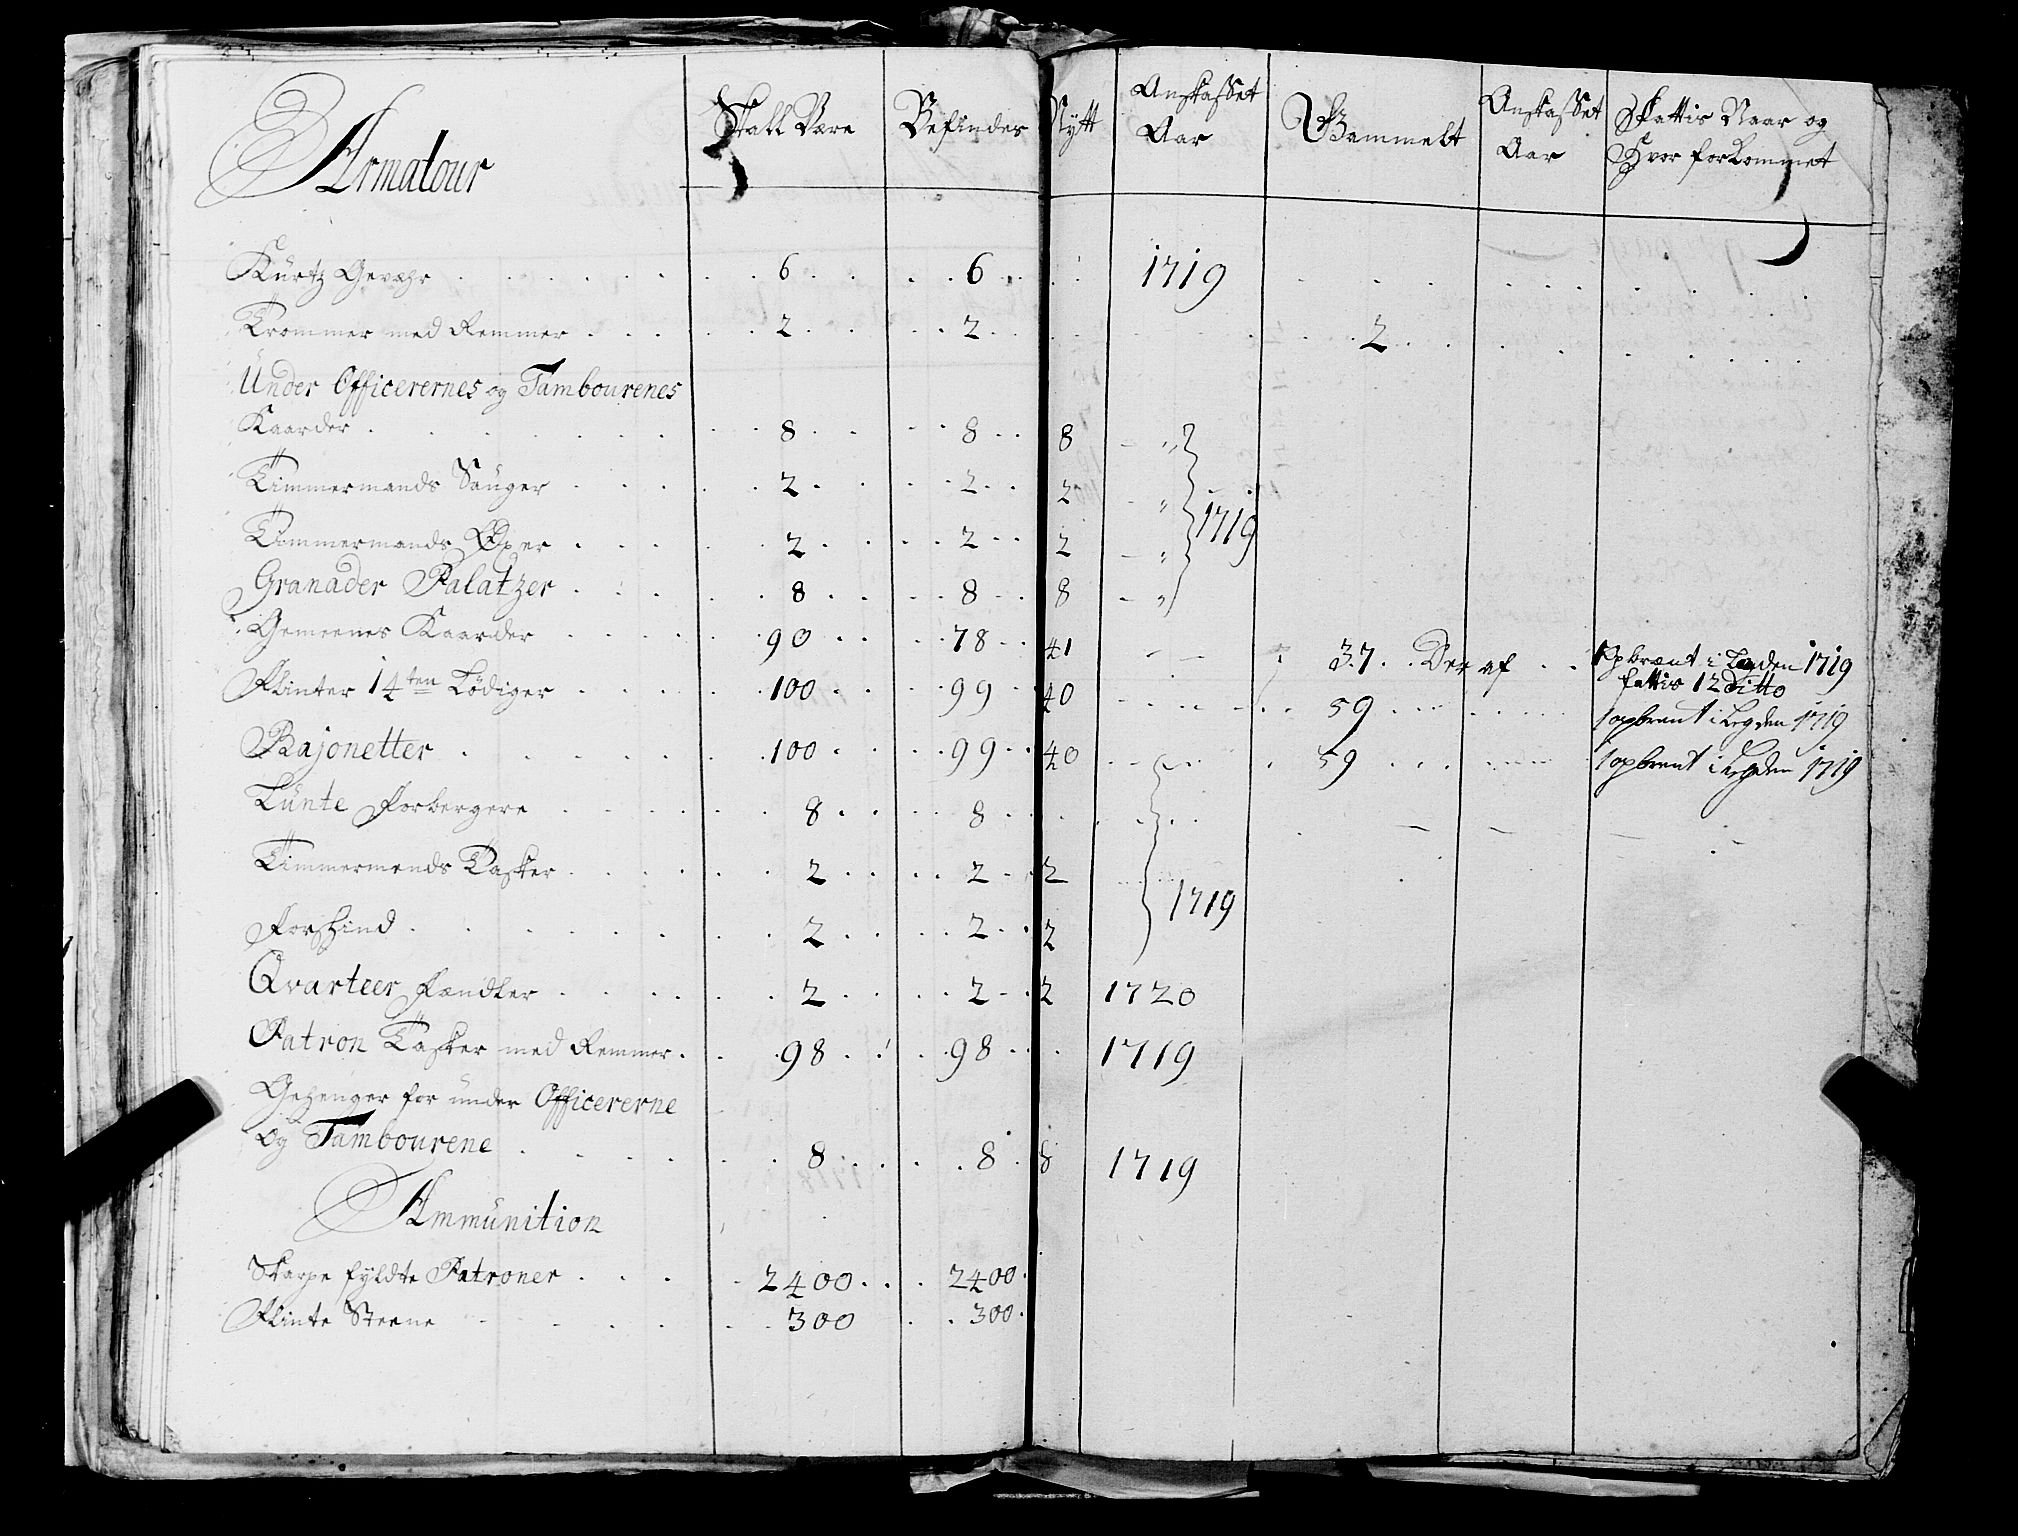 Armatour | Skall Være | Befindes | Nytt | Anskaffet Aar | Gammelt | Anskaffet Aar | Fattis Naar og Hvor forkommet
Kürtz Gevæhr | 6 | 6 | | 1719
Trommer med Remmer | 2 | 2 | | | 2
Under Officerernes og Tambourenes
Kaarder | 8 | 8 | 8 | "
Timmermands Sauger | 2 | 2 | 2 | " 1719
Timmermands Øxer | 2 | 2 | 2 | "
Granader Palatzer | 8 | 8 | 8 | "
Gemeenes Kaarder | 90 | 78 | 41 | | 37 Der af | | 1 opbrænt i Legden 1719
fattis 12 ditto
Flinter 14ten Lödiger | 100 | 99 | 40 | | 59 | | 1 opbrent i Legden 1719
Bajonetter | 100 | 99 | 40 | | 59 | | 1 opbrent i Legden 1719
Lünte Forbergere | 8 | 8
Timmermends Tasker | 2 | 2 | 2 | 1719
Forskind | 2 | 2 | 2
Qvarteer Fændler | 2 | 2 | 2 | 1720
Patron Tasker med Remmer | 98 | 98 | | 1719
Gehenger for under Officererne
Og Tambourene | 8 | 8 | 8 | 1719
Ammünition
Skarpe fyldte Patroner | 2400 | 2400
Flinte Steene | 300 | 300